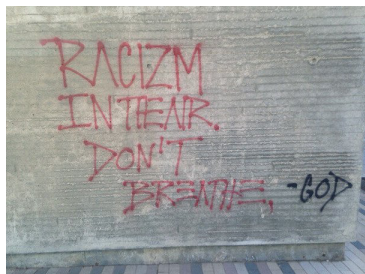 RACIZM
IN THE AIR.
DON'T
BREATHE, -GOD